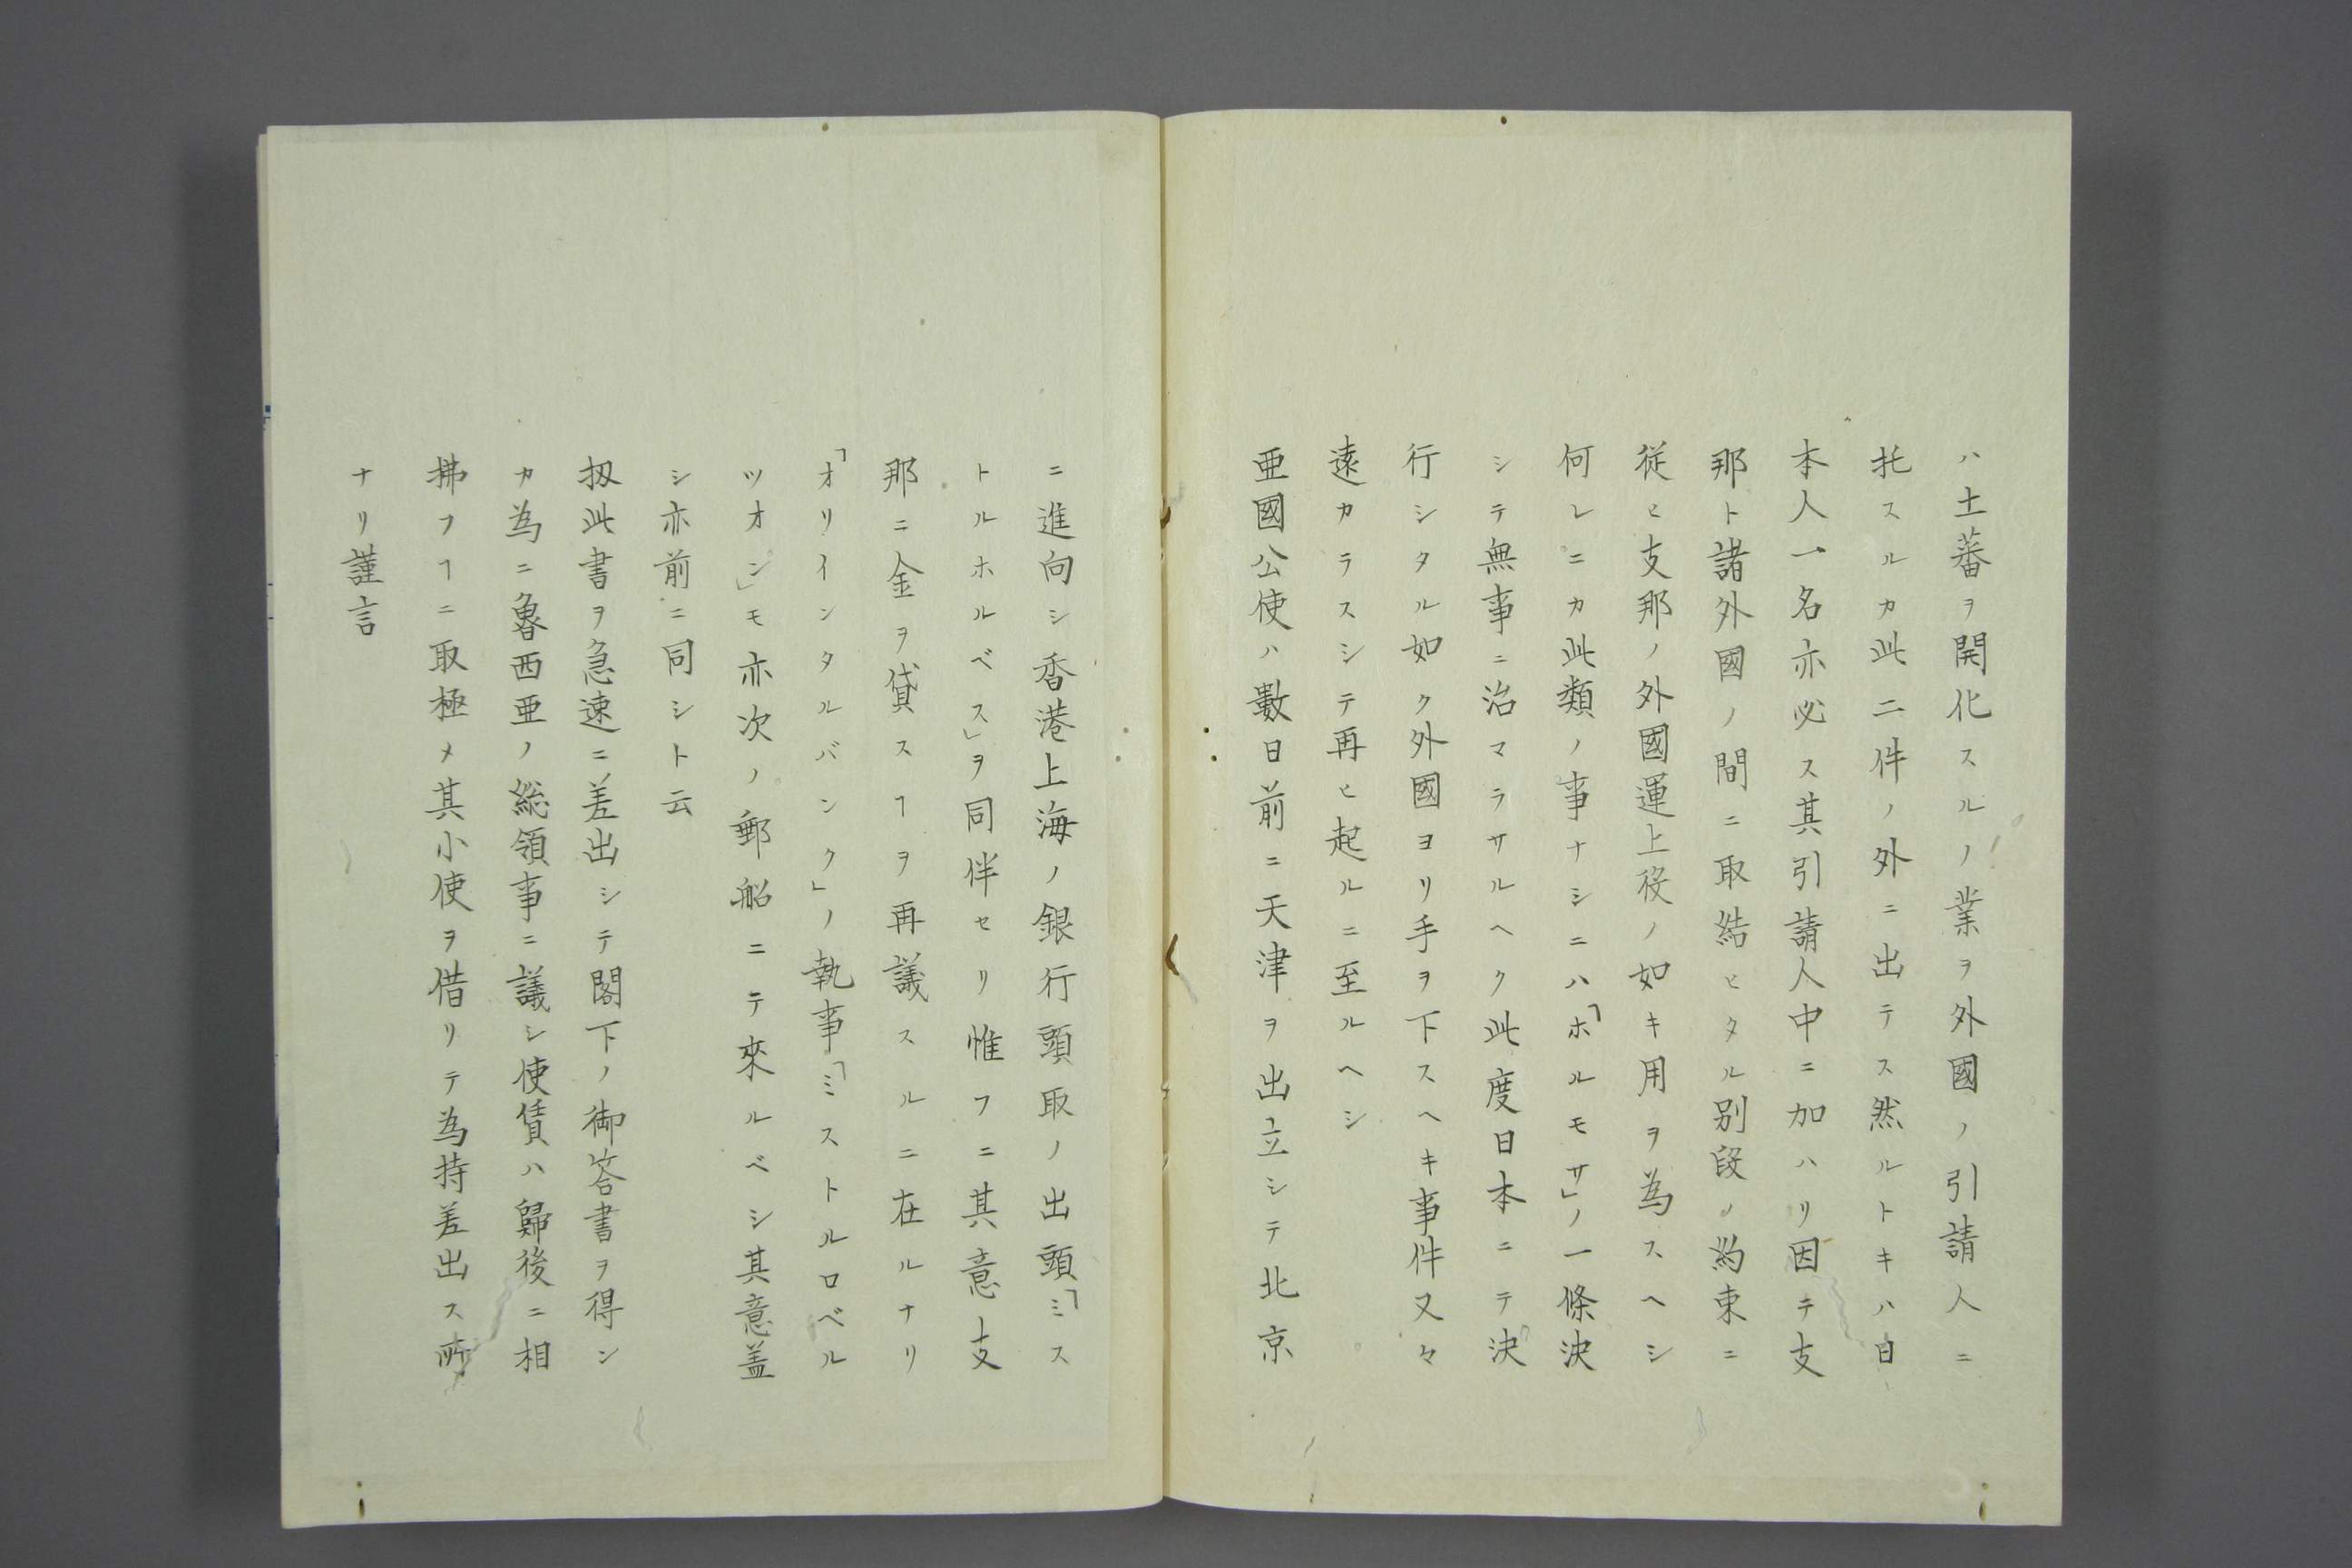 ハ土蕃ヲ開化スルノ業ヲ外國ノ引請人ニ
托スルカ此二件ノ外ニ出テス然ルトキハ日
本人一名亦必ス其引請人中ニ加ハリ因テ支
那ト諸外國ノ間ニ取結ヒタル別段ノ約束ニ
従ヒ支那ノ外國運上役ノ如キ用ヲ為スヘシ
何レニカ此類ノ事ナシニハ「ホルモサ」ノ一條決
シテ無事ニ治マラサルヘク此度日本ニテ決
行シタル如ク外國ヨリ手ヲ下スヘキ事件又々
遠カラスシテ再ヒ起ルニ至ルヘシ
亜國公使ハ數日前ニ天津ヲ出立シテ北京
ニ進向シ香港上海ノ銀行頭取ノ出頭「ミス
トルホルベス」ヲ同伴セリ惟フニ其意支
那ニ金ヲ貸スヿヲ再議スルニ在ルナリ
「オリインタルバンク」ノ執事「ミストルロベル
ツオン」モ亦次ノ郵船ニテ來ルベシ其意盖
シ亦前ニ同シト云
扨此書ヲ急速ニ差出シテ閣下ノ御答書ヲ得ン
カ為ニ魯西亜ノ総領事ニ議シ使賃ハ歸後ニ相
拂フヿニ取極メ其小使ヲ借リテ為持差出ス所
ナリ謹言